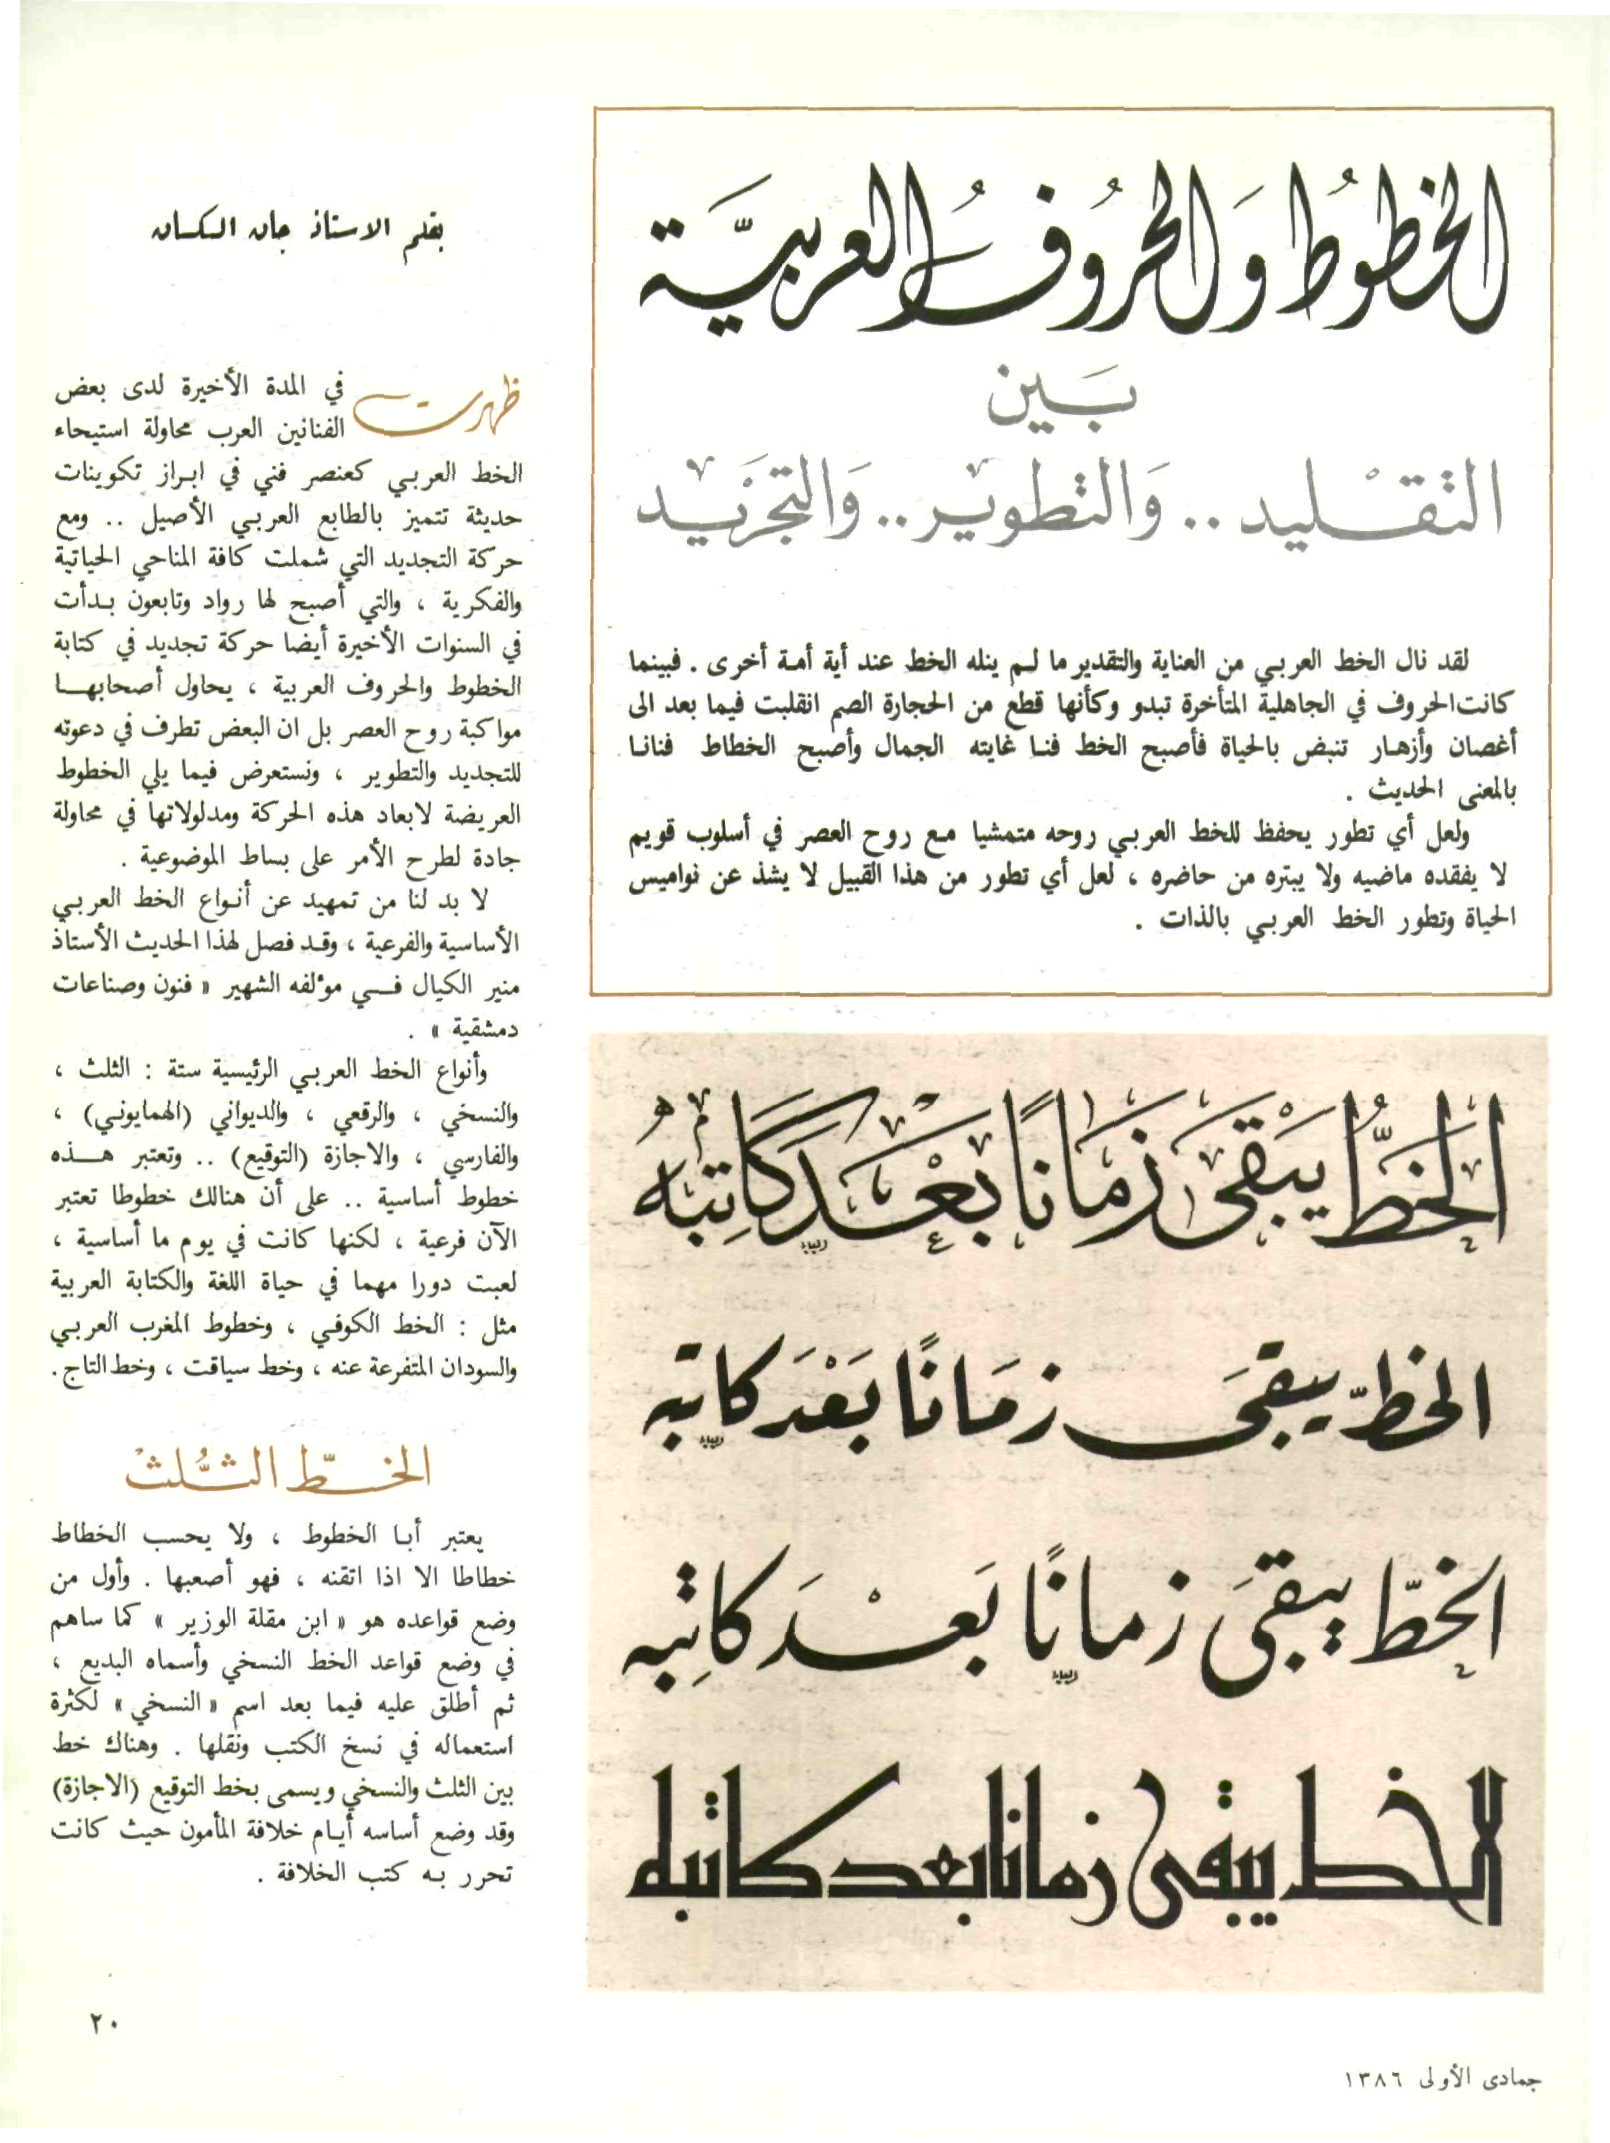 الخطوط والحروف العربية
بين
التقليد .. والتطوير .. والتجريد
لقد نال الخط العربي من العناية والتقدير ما لم ينله الخط عند أية أمة أخرى . فبينما
كانت الحروف في الجاهلية المتأخرة تبدو وكأنها قطع من الحجارة الصم انقلبت فيما بعد الى
أغصان وأزهار تنبض بالحياة فأصبح الخط فنا غايته الجمال وأصبح الخطاط فنانا
بالمعنى الحديث .
ولعل أي تطور يحفظ للخط العربي روحه متمشيا مع روح العصر في أسلوب قويم
لا يفقده ماضيه ولا يبتره من حاضره ، لعل أي تطور من هذا القبيل لا يشذ عن نواميس
الحياة وتطور الخط العربي بالذات .
الخط يبقى زمانا بعد كاتبه
الخط يبقى زمانا بعد كاتبه
الخط يبقى زمانا بعد كاتبه
الخط يبقى زمانا بعد كاتبه
بقلم الاستاذ جان الكسان
ظهرت في المدة الأخيرة لدى بعض
الفنانين العرب محاولة استيحاء
الخط العربي كعنصر فني في ابراز تكوينات
حديثة تتميز بالطابع العربي الأصيل .. ومع
حركة التجديد التي شملت كافة المناحي الحياتية
والفكرية ، والتي أصبح لها رواد وتابعون بدأت
في السنوات الأخيرة أيضا حركة تجديد في كتابة
الخطوط والحروف العربية ، يحاول أصحابها
مواكبة روح العصر بل ان البعض تطرف في دعوته
للتجديد والتطوير ، ونستعرض فيما يلي الخطوط
العريضة لابعاد هذه الحركة ومدلولاتها في محاولة
جادة لطرح الأمر على بساط الموضوعية .
لا بد لنا من تمهيد عن أنواع الخط العربي
الأساسية والفرعية ، وقد فصل لهذا الحديث الأستاذ
منير الكيال في مؤلفه الشهير « فنون وصناعات
دمشقية » .
وأنواع الخط العربي الرئيسية ستة : الثلث ،
والنسخي ، والرقعي ، والديواني (الهمايوني) ،
والفارسي ، والاجازة (التوقيع) .. وتعتبر هذه
خطوط أساسية .. على أن هنالك خطوطا تعتبر
الآن فرعية ، لكنها كانت في يوم ما أساسية ،
لعبت دورا مهما في حياة اللغة والكتابة العربية
مثل : الخط الكوفي ، وخطوط المغرب العربي
والسودان المتفرعة عنه ، وخط سياقت ، وخط التاج .
الخط الثلث
يعتبر أبا الخطوط ، ولا يحسب الخطاط
خطاطا الا اذا اتقنه ، فهو أصعبها . وأول من
وضع قواعده هو « ابن مقلة الوزير » كما ساهم
في وضع قواعد الخط النسخي وأسماه البديع ،
ثم أطلق عليه فيما بعد اسم « النسخي » لكثرة
استعماله في نسخ الكتب ونقلها . وهناك خط
بين الثلث والنسخي ويسمى بخط التوقيع (الاجازة)
وقد وضع أساسه أيام خلافة المأمون حيث كانت
تحرر به كتب الخلافة .
٢٠
جمادى الأولى ١٣٨٦